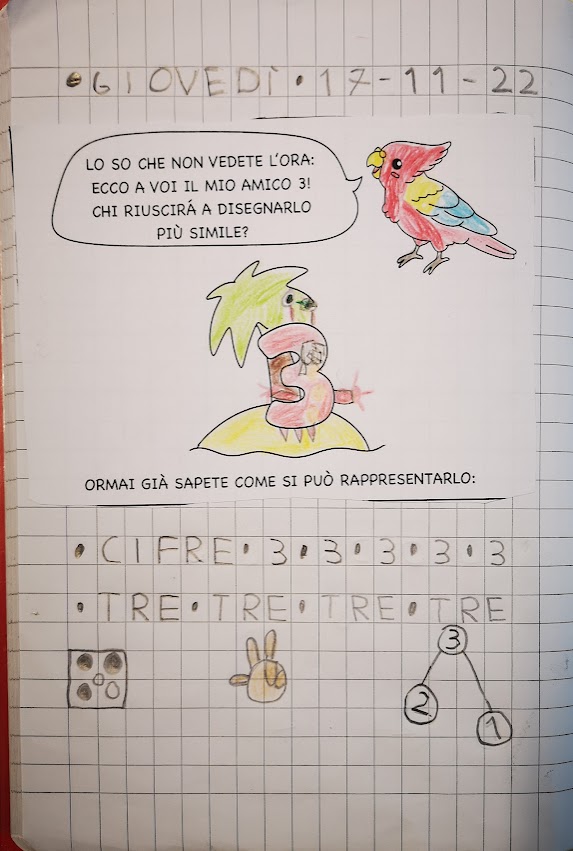 • GIOVEDÌ • 17-11-22
LO SO CHE NON VEDETE L'ORA:
ECCO A VOI IL MIO AMICO 3!
CHI RIUSCIRÁ A DISEGNARLO
PIÙ SIMILE?
3
ORMAI GIÀ SAPETE COME SI PUÒ RAPPRESENTARLO:
• CIFRE • 3 • 3 • 3 • 3 • 3
• TRE • TRE • TRE • TRE
3
2
1